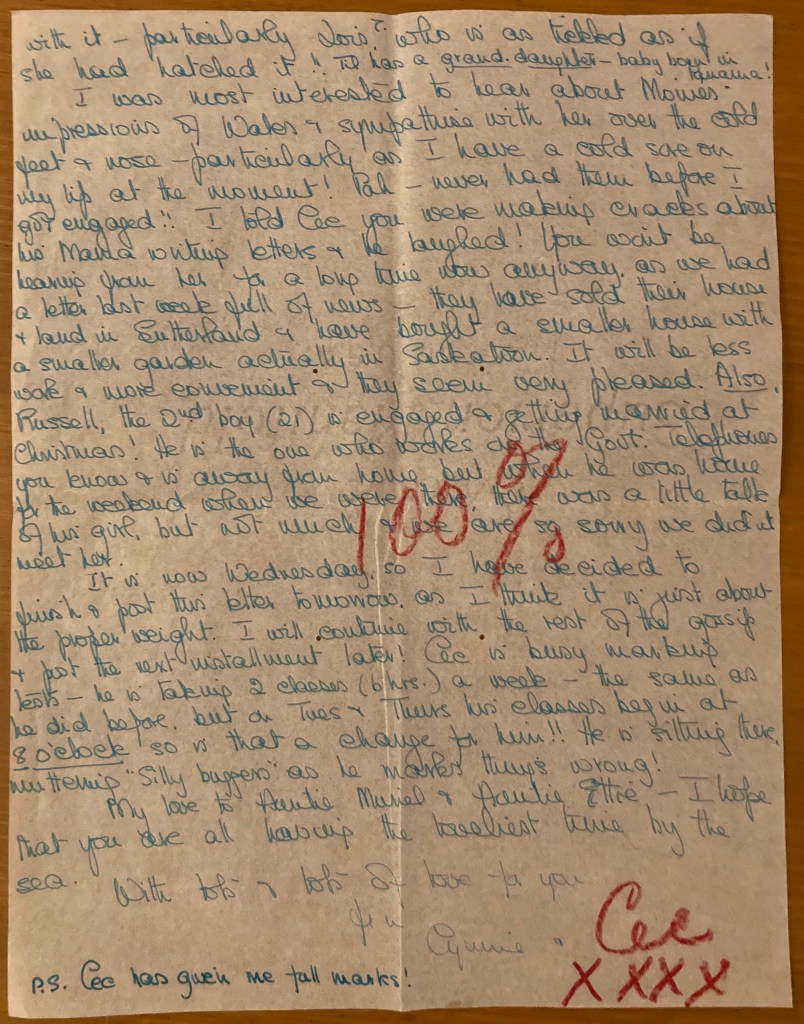 with it – particularly Lois, ? who is as tickled as if
she had hatched it!! has a grand-daughter – baby born in Panama!
I was most interested to hear about Momies
impressions of Wales & sympathise with her over the cold
feet & nose – particularly as I have a cold sore on
my lip at the moment! Pah – never had them before I
got engaged!! I told Cec you were making cracks about
his Mama writing letters & he laughed! You won't be
hearing from her for a long time now anyway, as we had
a letter last week full of news – they have sold their house
& land in Sutherland & have bought a smaller house with
a smaller garden actually in Saskatoon. It will be less
work & more convenient & they seem very pleased. Also,
Russell, the 2nd boy (21) is engaged & getting married at
Christmas! He is the one who works on the Govt. Telephones
you know & is away from home, but when he was home
for the weekend when we were there, there was a little talk
of his girl, but not much & we are so sorry we didn't
meet her.
100%
It is now Wednesday, so I have decided to
finish & post this letter tomorrow, as I think it is just about
the proper weight. I will continue with the rest of the gossip
& post the next installment later! Cec is busy marking
tests – he is taking 2 classes (6 hrs.) a week – the same as
he did before, but on Tues & Thurs his classes begin at
8 o'clock so is that a change for him!! He is sitting there,
muttering "Silly buggers" as he marks things wrong!
My love to Auntie Muriel & Auntie – I hope
that you are all having the loveliest time by the
sea.
With lots & lots of love to you
from
&
Cec
XXXX
P.S. Cec has given me full marks!